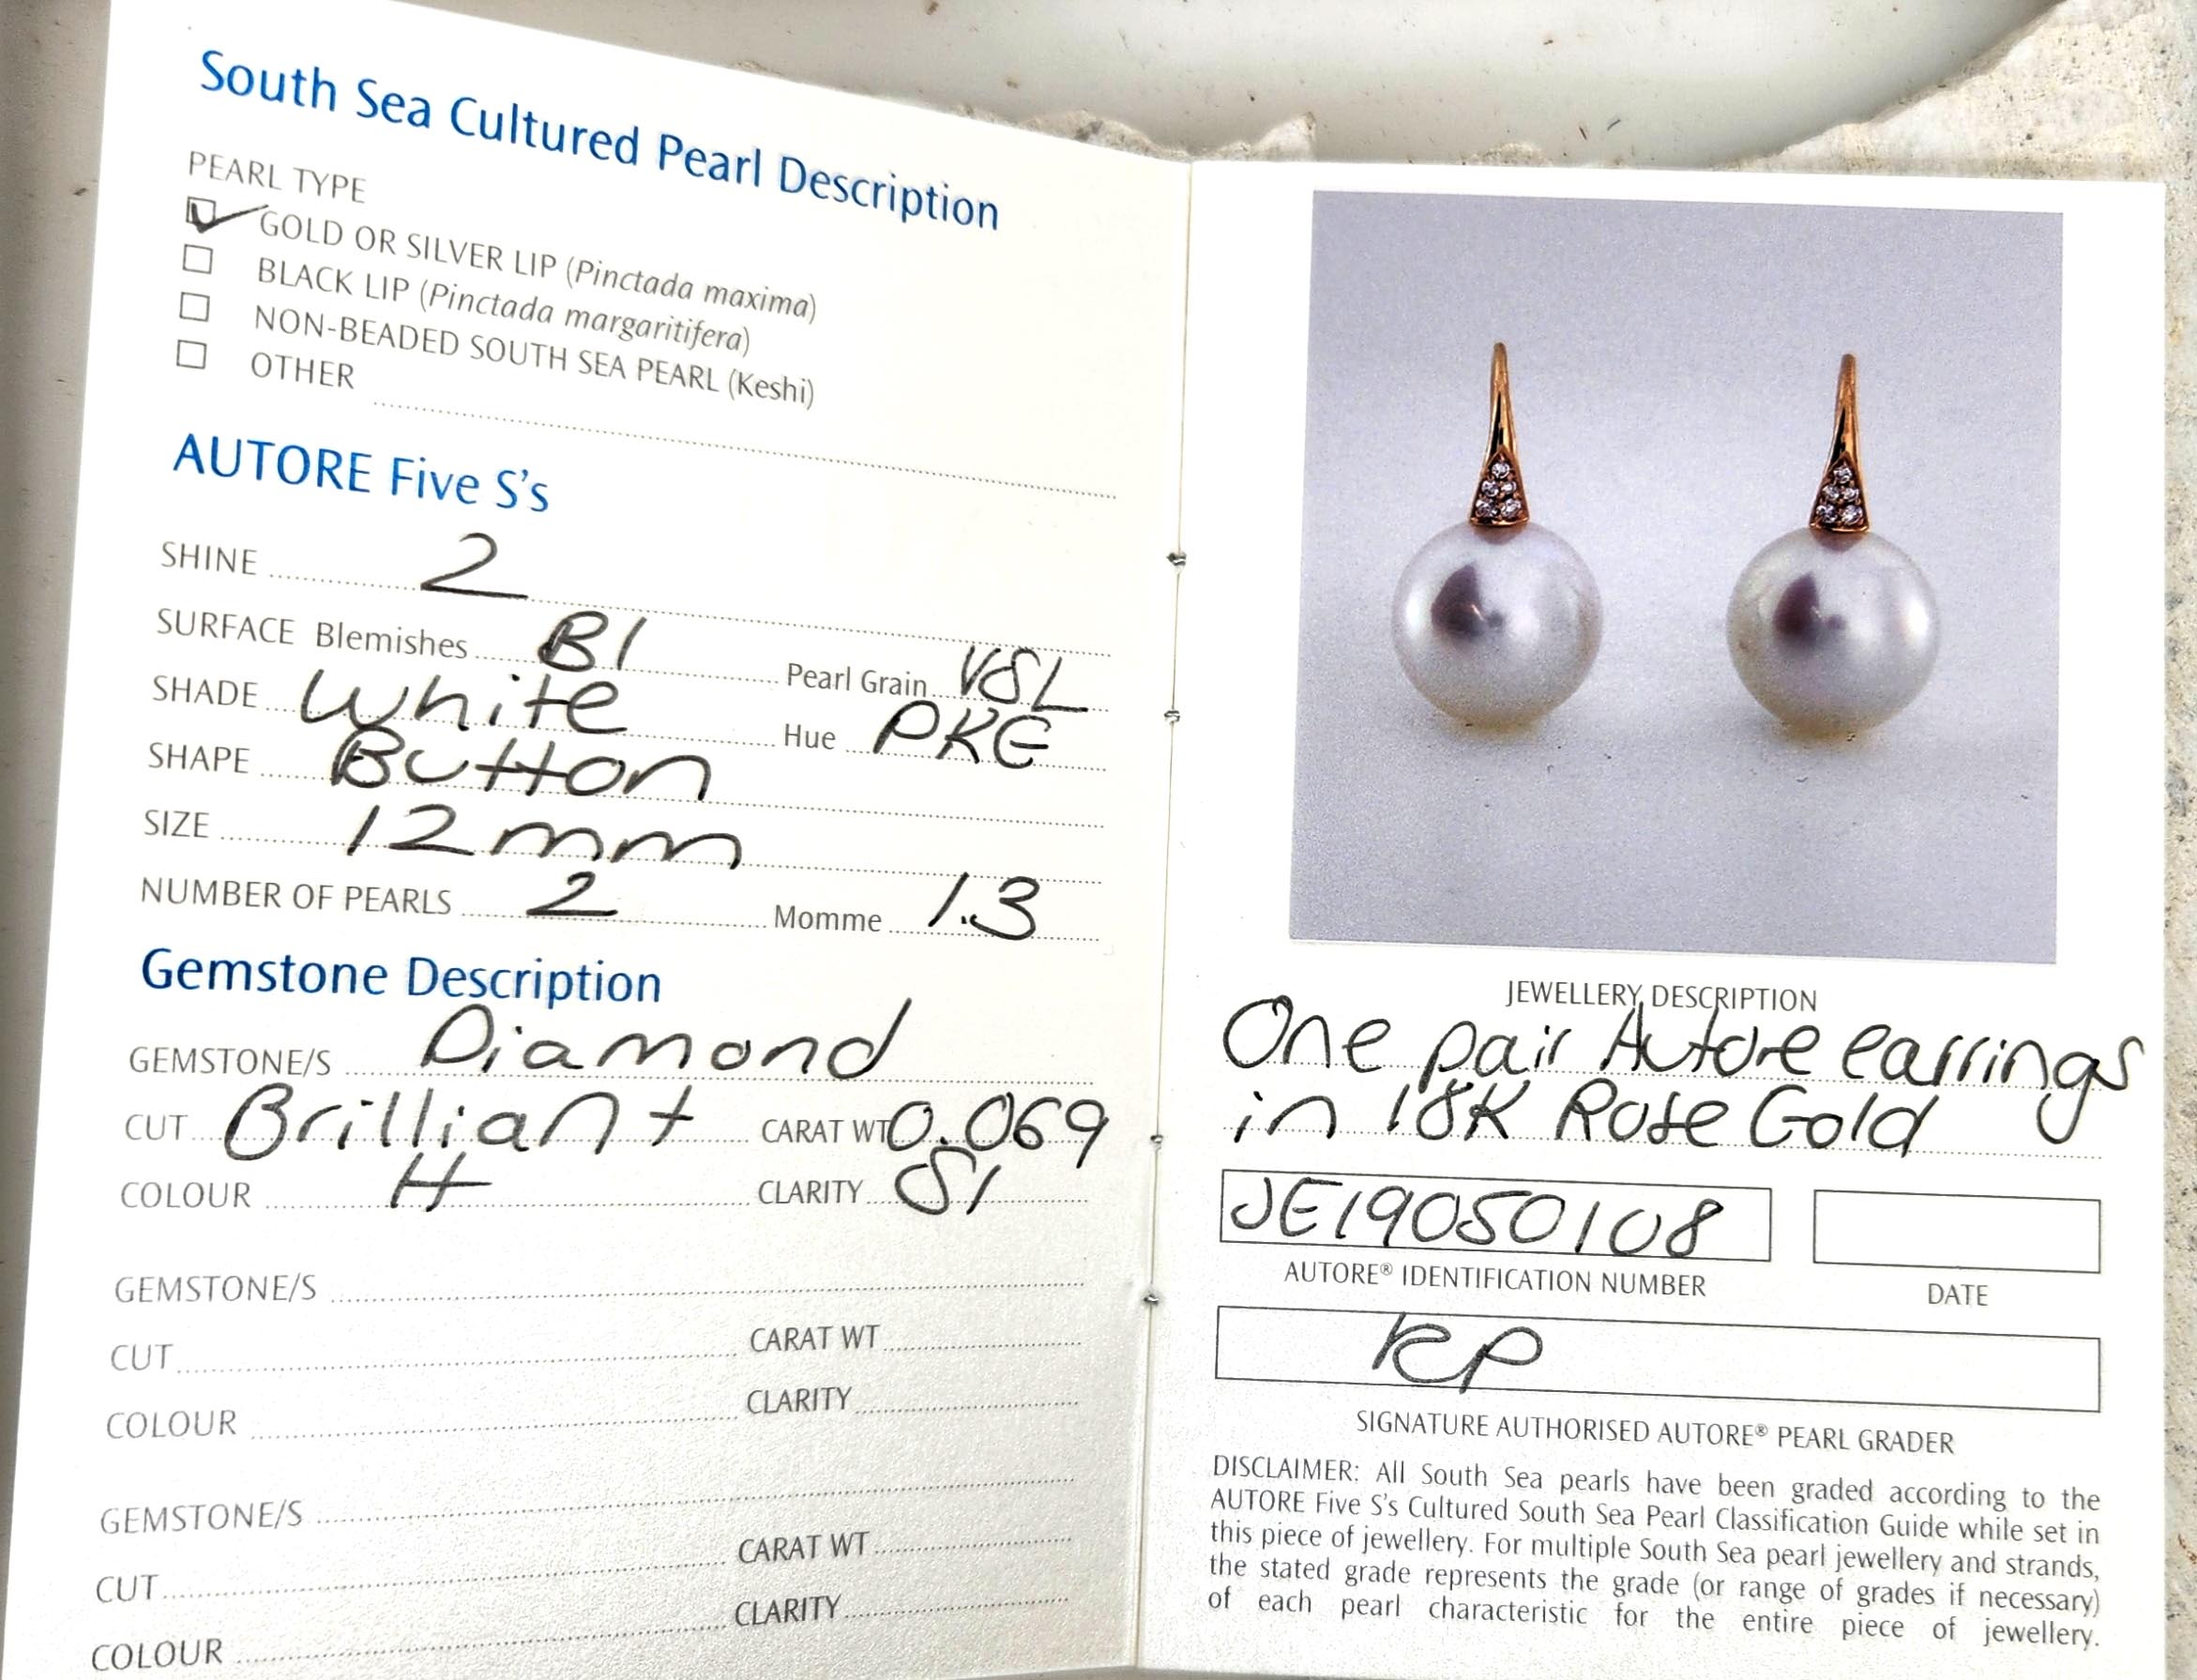 South Sea Cultured Pearl Description
PEARL TYPE
GOLD OR SILVER LIP (Pinctada maxima)
BLACK LIP (Pinctada margaritifera)
NON-BEADED SOUTH SEA PEARL (Keshi)
OTHER
AUTORE Five S's
SHINE 2
SURFACE Blemishes B1 Pearl Grain VSL
SHADE White Hue PKE
SHAPE Button
SIZE 12mm
NUMBER OF PEARLS 2 Momme 1.3
Gemstone Description
GEMSTONE/S Diamond
CUT Brilliant CARAT WT 0.069
COLOUR H CLARITY SI
GEMSTONE/S
CUT CARAT WT
COLOUR CLARITY
GEMSTONE/S
CUT CARAT WT
COLOUR CLARITY
JEWELLERY DESCRIPTION
One pair Autore earrings
in 18K Rose Gold
JE19050108
AUTORE® IDENTIFICATION NUMBER DATE
KP
SIGNATURE AUTHORISED AUTORE® PEARL GRADER
DISCLAIMER: All South Sea pearls have been graded according to the
AUTORE Five S's Cultured South Sea Pearl Classification Guide while set in
this piece of jewellery. For multiple South Sea pearl jewellery and strands,
the stated grade represents the grade (or range of grades if necessary)
of each pearl characteristic for the entire piece of jewellery.